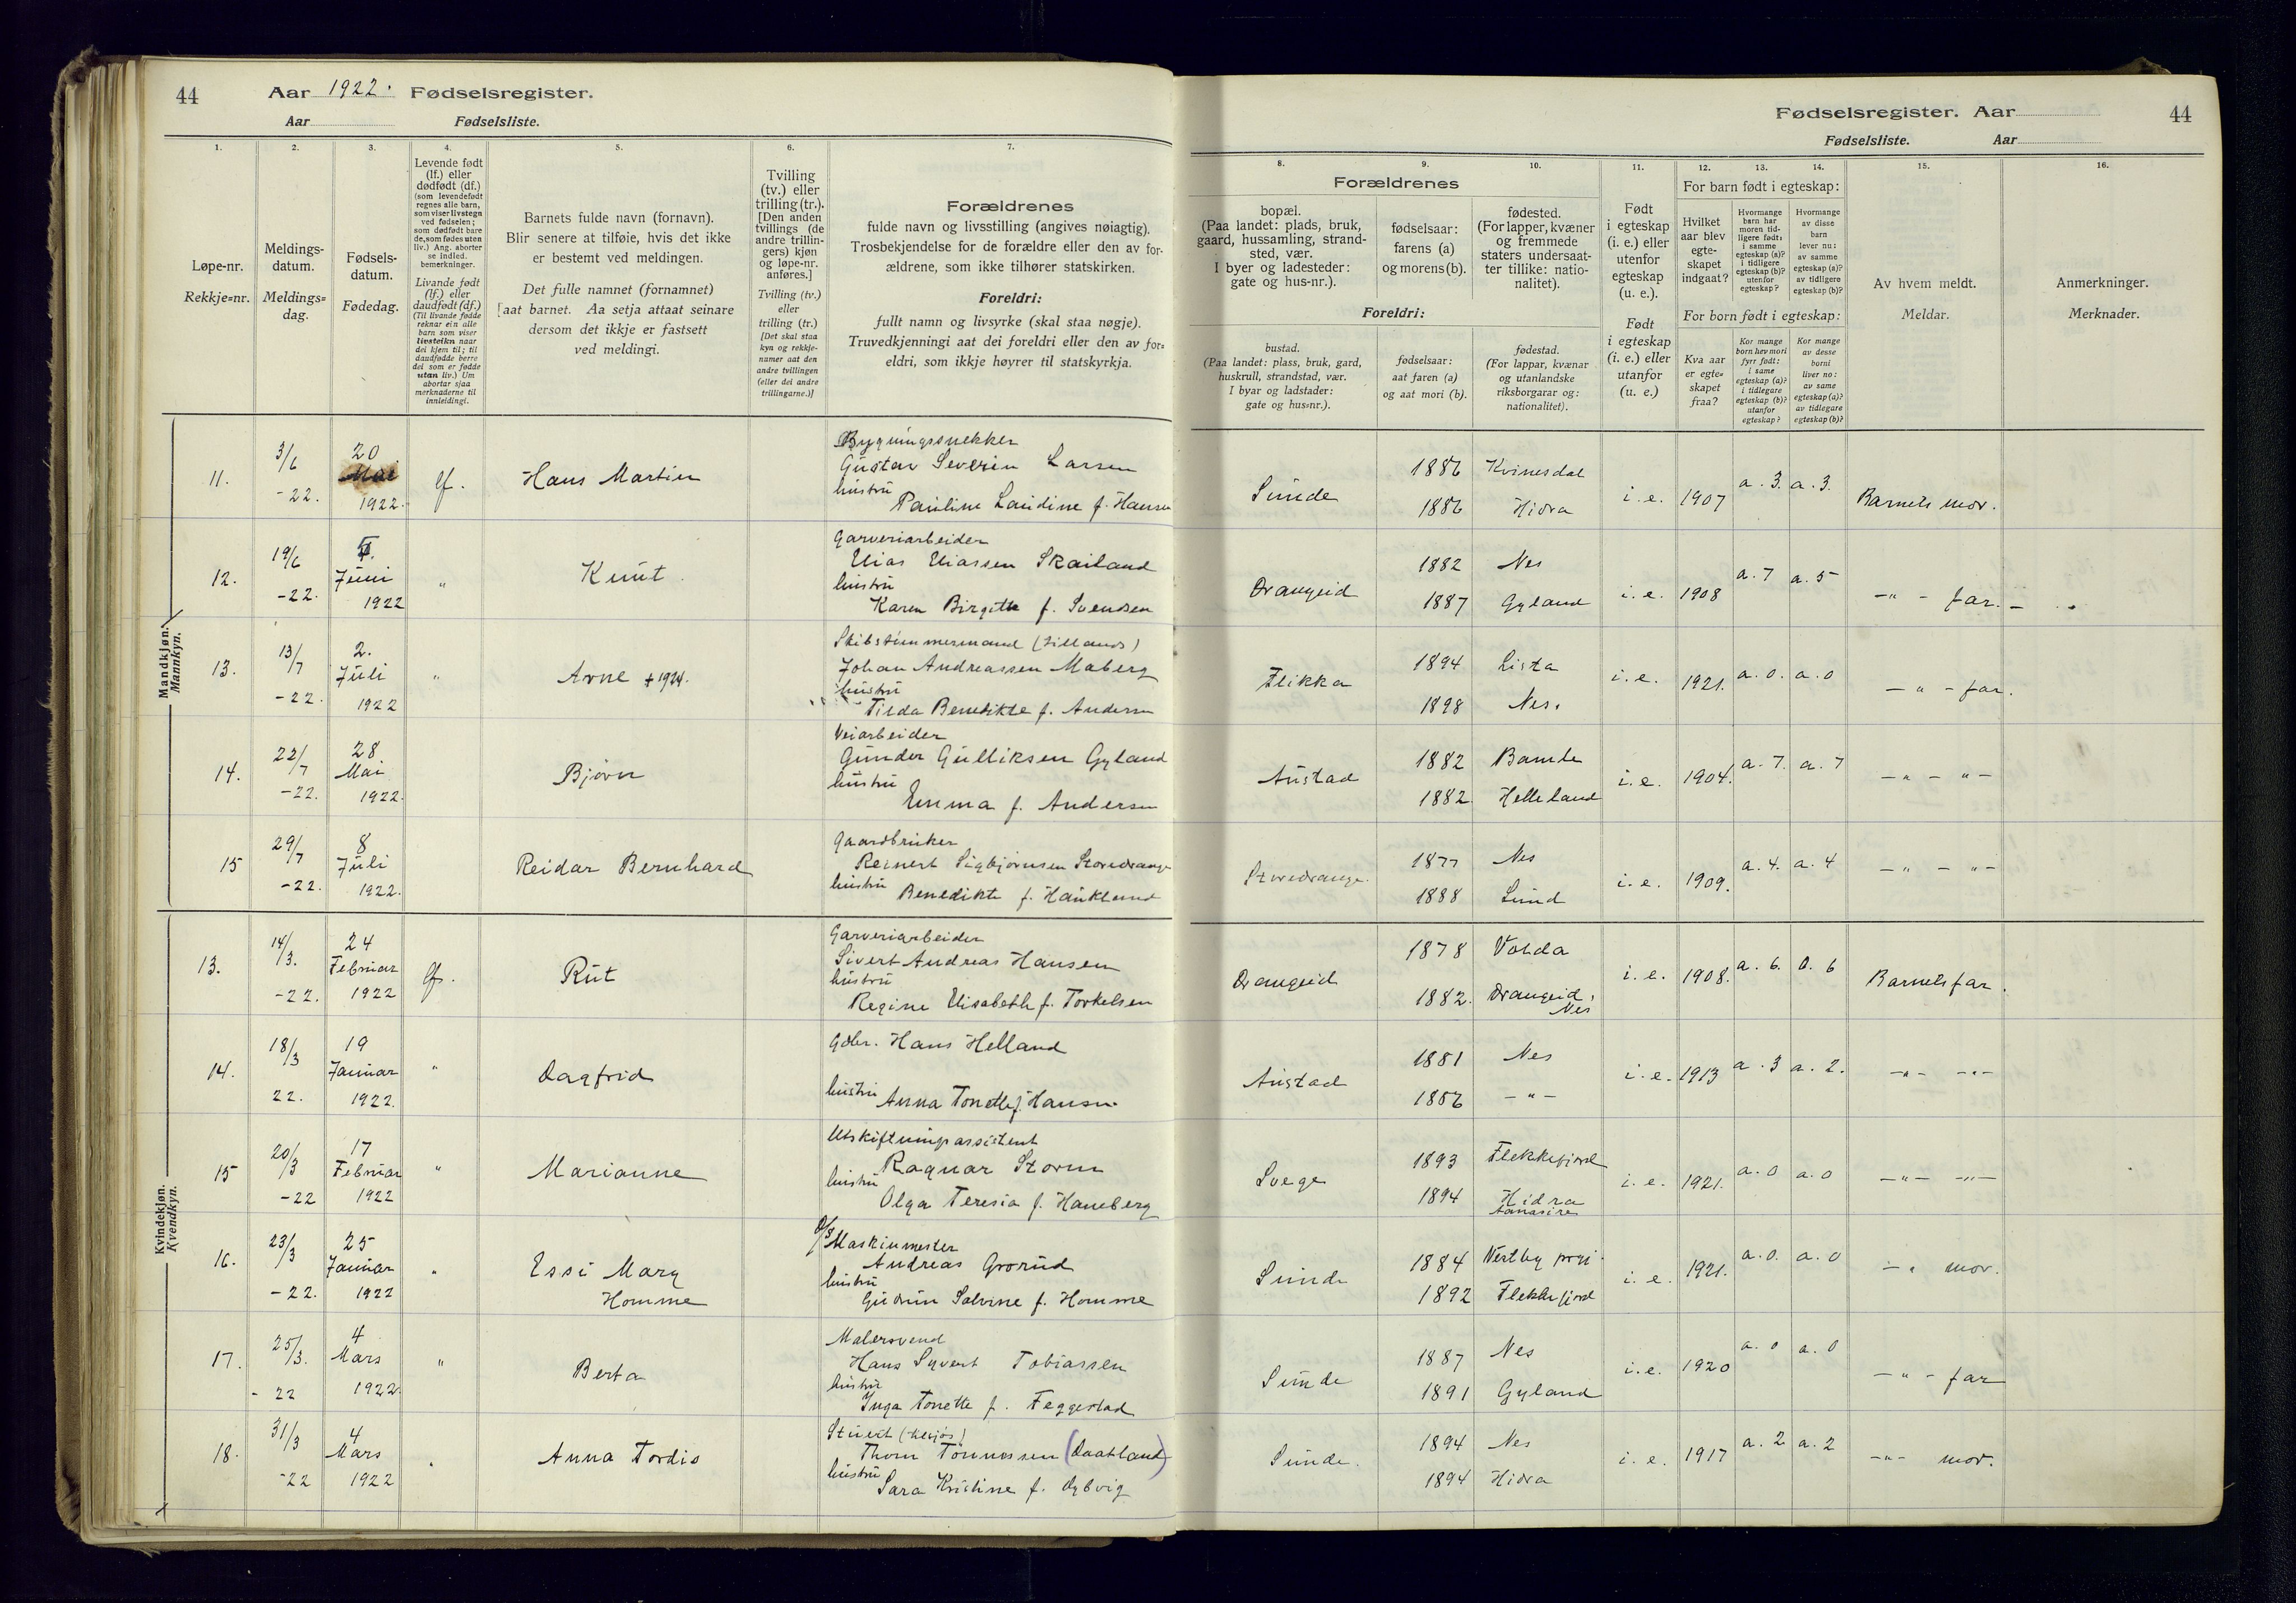 44
Aar 1922. Fødselsregister.
Aar Fødselsliste.
Fødselsregister. Aar
44
Fødselsliste. Aar
1.
2.
3.
4.
5.
6.
7.
8.
9.
10.
11.
12.
13.
14.
15.
16.
Løpe-nr.
Rekkje=nr.
Meldings-
datum.
Meldings=
dag.
Fødsels-
datum.
Fødedag.
Levende født
(lf.) eller
dødfødt (df.)
(som levendefødt
regnes alle barn,
som viser livstegn
ved fødselen;
som dødfødt bare
de, som fødes uten
liv.) Ang. aborter
se indled.
bemerkninger.
Livande født
(lf.) eller
daudfødt (df.)
(Til livande fødde
reknar ein alle
barn som viser
livsteikn naar
dei kjem til; til
daudfødde berre
dei som er fødde
utan liv.) Um
abortar sjaa
merknaderne til
innleidingi.
Barnets fulde navn (fornavn).
Blir senere at tilføie, hvis det ikke
er bestemt ved meldingen.
Det fulle namnet (fornamnet)
[aat barnet. Aa setja attaat seinare
dersom det ikkje er fastsett
ved meldingi.
Tvilling
(tv.) eller
trilling (tr.).
[Den anden
tvillings (de
andre trillin-
gers) kjøn
og løpe-nr.
anføres.]
Tvilling (tv.)
eller
trilling (tr.)
[Det skal staa
kyn og rekkje-
numer aat den
andre tvillingen
(eller dei andre
trillingarne.)]
Forældrenes
fulde navn og livsstilling (angives nøiagtig).
Trosbekjendelse for de forældre eller den av for-
ældrene, som ikke tilhører statskirken.
Foreldri:
fullt namn og livsyrke (skal staa nøgje).
Truvedkjenningi aat dei foreldri eller den av for=
eldri, som ikkje høyrer til statskyrkja.
Forældrenes
bopæl.
(Paa landet: plads, bruk,
gaard, hussamling, strand-
sted, vær.
I byer og ladesteder:
gate og hus-nr.).
fødselsaar:
farens (a)
og morens (b).
fødested.
(For lapper, kvæner
og fremmede
staters undersaat-
ter tillike: natio-
nalitet).
Foreldri:
bustad.
(Paa landet: plass, bruk, gard,
huskrull, strandstad, vær.
I byar og ladstader:
gate og hus=nr.).
fødselsaar:
aat faren (a)
og aat mori (b).
fødestad.
(For lappar, kvænar
og utanlandske
riksborgarar og:
nationalitet).
Født
i egteskap
(i. e.) eller
utenfor
egteskap
(u. e.).
Født
i egteskap
(i. e.) eller
utanfor
(u. e.)
For barn født i egteskap:
Hvilket
aar blev
egte-
skapet
indgaat?
Hvormange
barn har
moren tid-
ligere født:
i samme
egteskap (a)?
i tidligere
egteskap (b)?
utenfor
egteskap?
Hvormange
av disse
barn
lever nu:
av samme
egteskap (a)?
av tidligere
egteskap (b)?
For born født i egteskap:
Kva aar
er egte=
skapet
fraa?
Kor mange
born hev mori
fyrr født:
i same
egteskap (a)?
i tidlegare
egteskap (b)?
utanfor
egteskap?
Kor mange
av desse
borni
liver no:
av same
egteskap (a)?
av tidlegare
egteskap (b)?
Av hvem meldt.
Meldar.
Anmerkninger.
Merknader.
Mandkjøn.
Mannkyn.
11. 3/6 -22. 20 Mai 1922. lf. Hans Martin
Bygningssnekker
Gustav Severin Larsen
hustru
Pauline Laudine f. Hansen
Sunde 1886 Kvinesdal
1886 Hidra
i.e. 1907 a. 3. a. 3. Barnets mor.
12. 19/6 -22. Juni 1922 " Knut
Garveriarbeider
Elias Eliassen Skailand
hustru
Karen Birgitte f. Svendsen
Drangeid 1882 Nes
1887 Gyland
i.e. 1908 a. 7 a. 5 -"- far.
13. 13/7 -22. 2. Juli 1922 " Arne +1924.
Skibstømmermand (tillands)
Johan Andreassen Maberg
hustru
Tilda Benedikte f. Andersen
Flikka 1894 Lista
1898 Nes.
i.e. 1921. a. 0. a. 0 -"- far.
14. 22/7 -22. 28 Mai 1922. Bjørn
Veiarbeider
Gunder Gulliksen Gyland
hustru
Emma f. Andersen
Austad 1882 Bamle
1882 Helleland
i.e. 1904. a. 7. a. 7 -"-"-
15 29/7 -22. 8 Juli 1922. Reidar Bernhard
Gaardbruker
Reinert Sigbjørnsen Storedrange
hustru Benedikte f. Haukland
Storedrange 1877 Nes
1888 Lund
i.e. 1909. a. 4. a. 4 -"-"-
Kvindekjøn.
Kvendkyn.
13. 14/3. -22. 24 Februar 1922 lf. Rut
Garveriarbeider
Sivert Andreas Hansen
hustru
Regine Elisabeth f. Torkelsen
Drangeid 1878 Volda
1882. Drangeid, Nes
i.e. 1908. a. 6. b. 6 Barnets far.
14. 18/3 22. 19 Januar 1922. " Dagfrid
Gdbr. Hans Helland
hustru Anna Tonette f. Hansen
Austad 1881 Nes
1886 -"-
i.e. 1913 a. 3 a. 2. -"- -"-
15 20/3 -22 17 Februar 1922 " Marianne
Utskiftningsassistent
Ragnar Storm
hustru
Olga Teresia f. Haneberg
Svege 1893 Flekkefjord
1894 Hidra Aanasire
i.e. 1921. a. 0 a. 0 -"- -"-
16. 23/3 -22. 25 Januar 1922 " Essi Mary
Homme
D/S Maskinmester
Andreas Grorud
hustru
Gudrun Salvine f. Homme
Sunde 1884 Vestby prgj.
1892 Flekkefjord
i.e. 1921. a. 0. a. 0 -" mor.
17. 25/3. -22 4 Mars 1922. " Berta
Malersvend
Hans Syvert Tobiassen
hustru
Inga Tonette f. Feggestad
Sunde 1887 Nes
1891 Gyland
i.e. 1920 a. 0 a. 0 -"- far
18. 31/3 -22 4 Mars 1922 " Anna Tordis
Stuert (tilsjøs)
Thom Tønnessen (Daatland)
hustru
Sara Kristine f. Dybvig
Sunde. 1894 Nes
1894 Hidra
i.e. 1917 a. 2 a. 2 -"- mor.